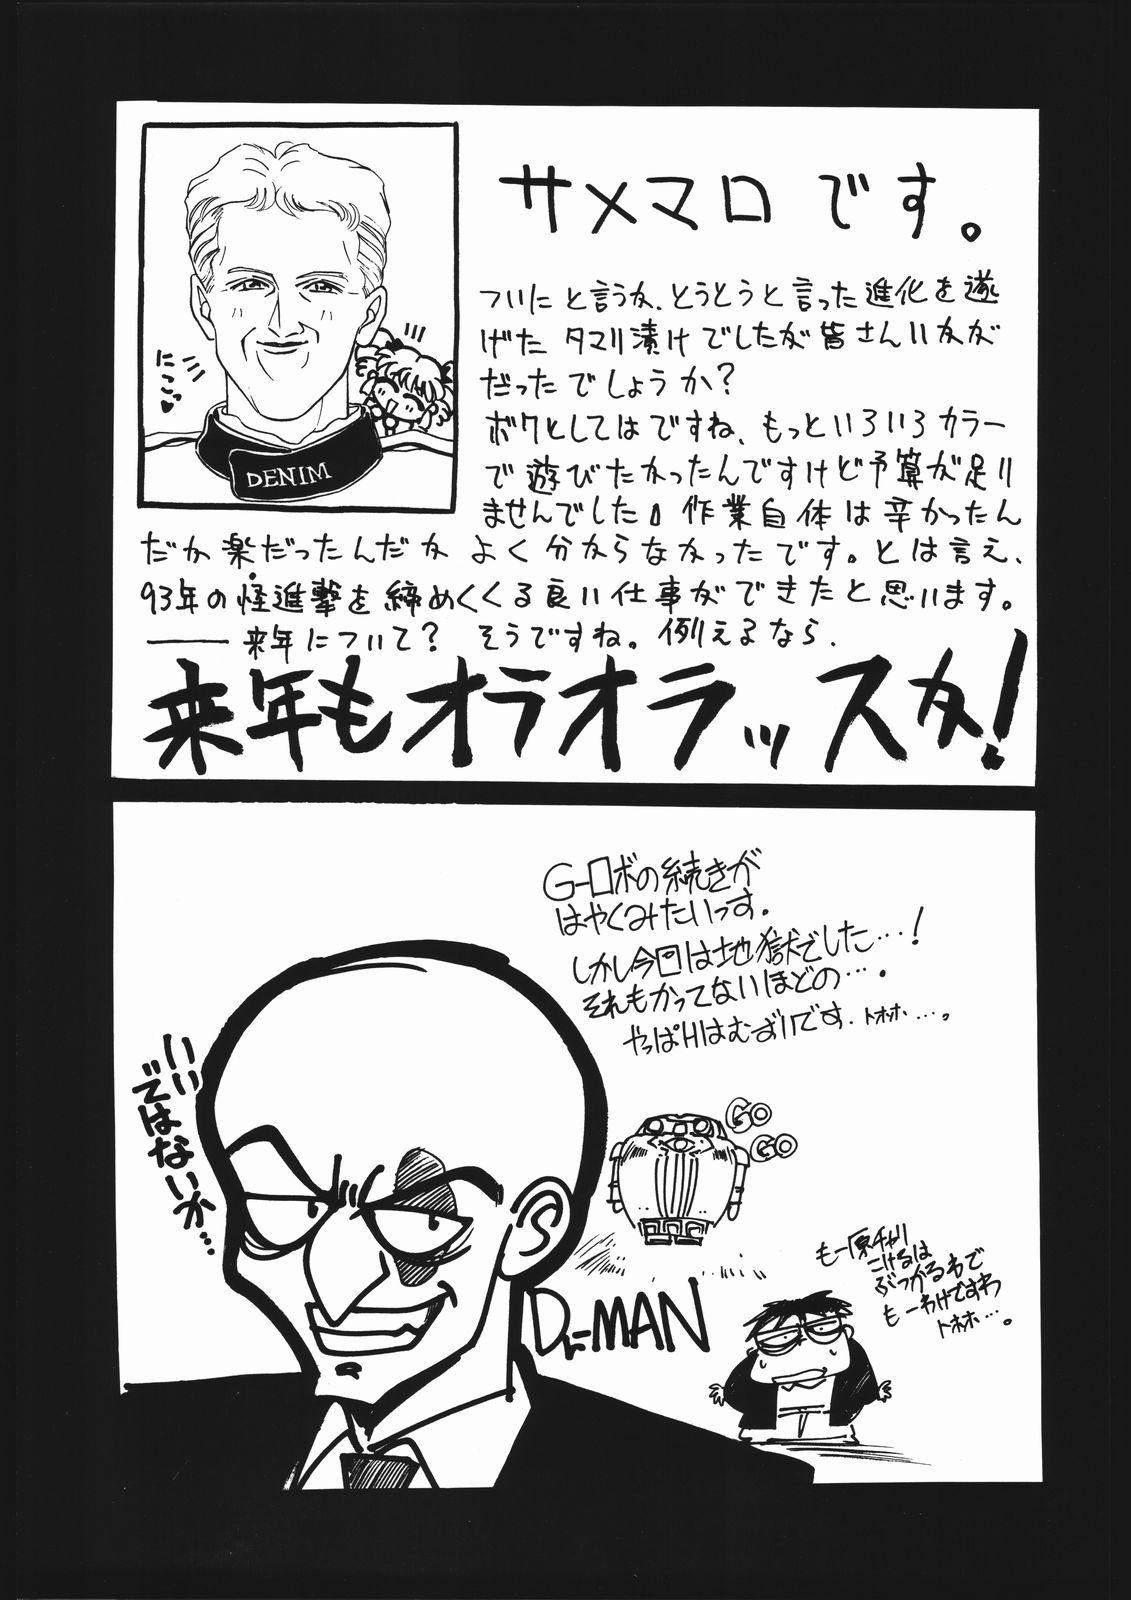 サメマロです。
ついにと言うか、とうとうと言った進化を遂
げたタマリ漬けでしたが皆さんいかが
だったでしょうか?
ボクとしてはですね、もっといろいろカラー
で遊びたかったんですけど予算が足り
ませんでした。作業自体は辛かったん
だか楽だったんだかよく分からなかったです。とは言え、
93年の怪進撃を締めくくる良い仕事ができたと思います。
——来年について? そうですね。例えるなら、
来年もオラオラッスか!
にこっ♥
DENIM
G-ロボの続きが
はやくみたいっす。
しかし今回は地獄でした…!
それもかってないほどの…。
やっぱHはむずいです、トホホ…。
いい
ではないか…
GO
GO
Dr-MAN
もー原チャリ
こけるは
ぶつかるわで
もーわけですわ
トホホ…。